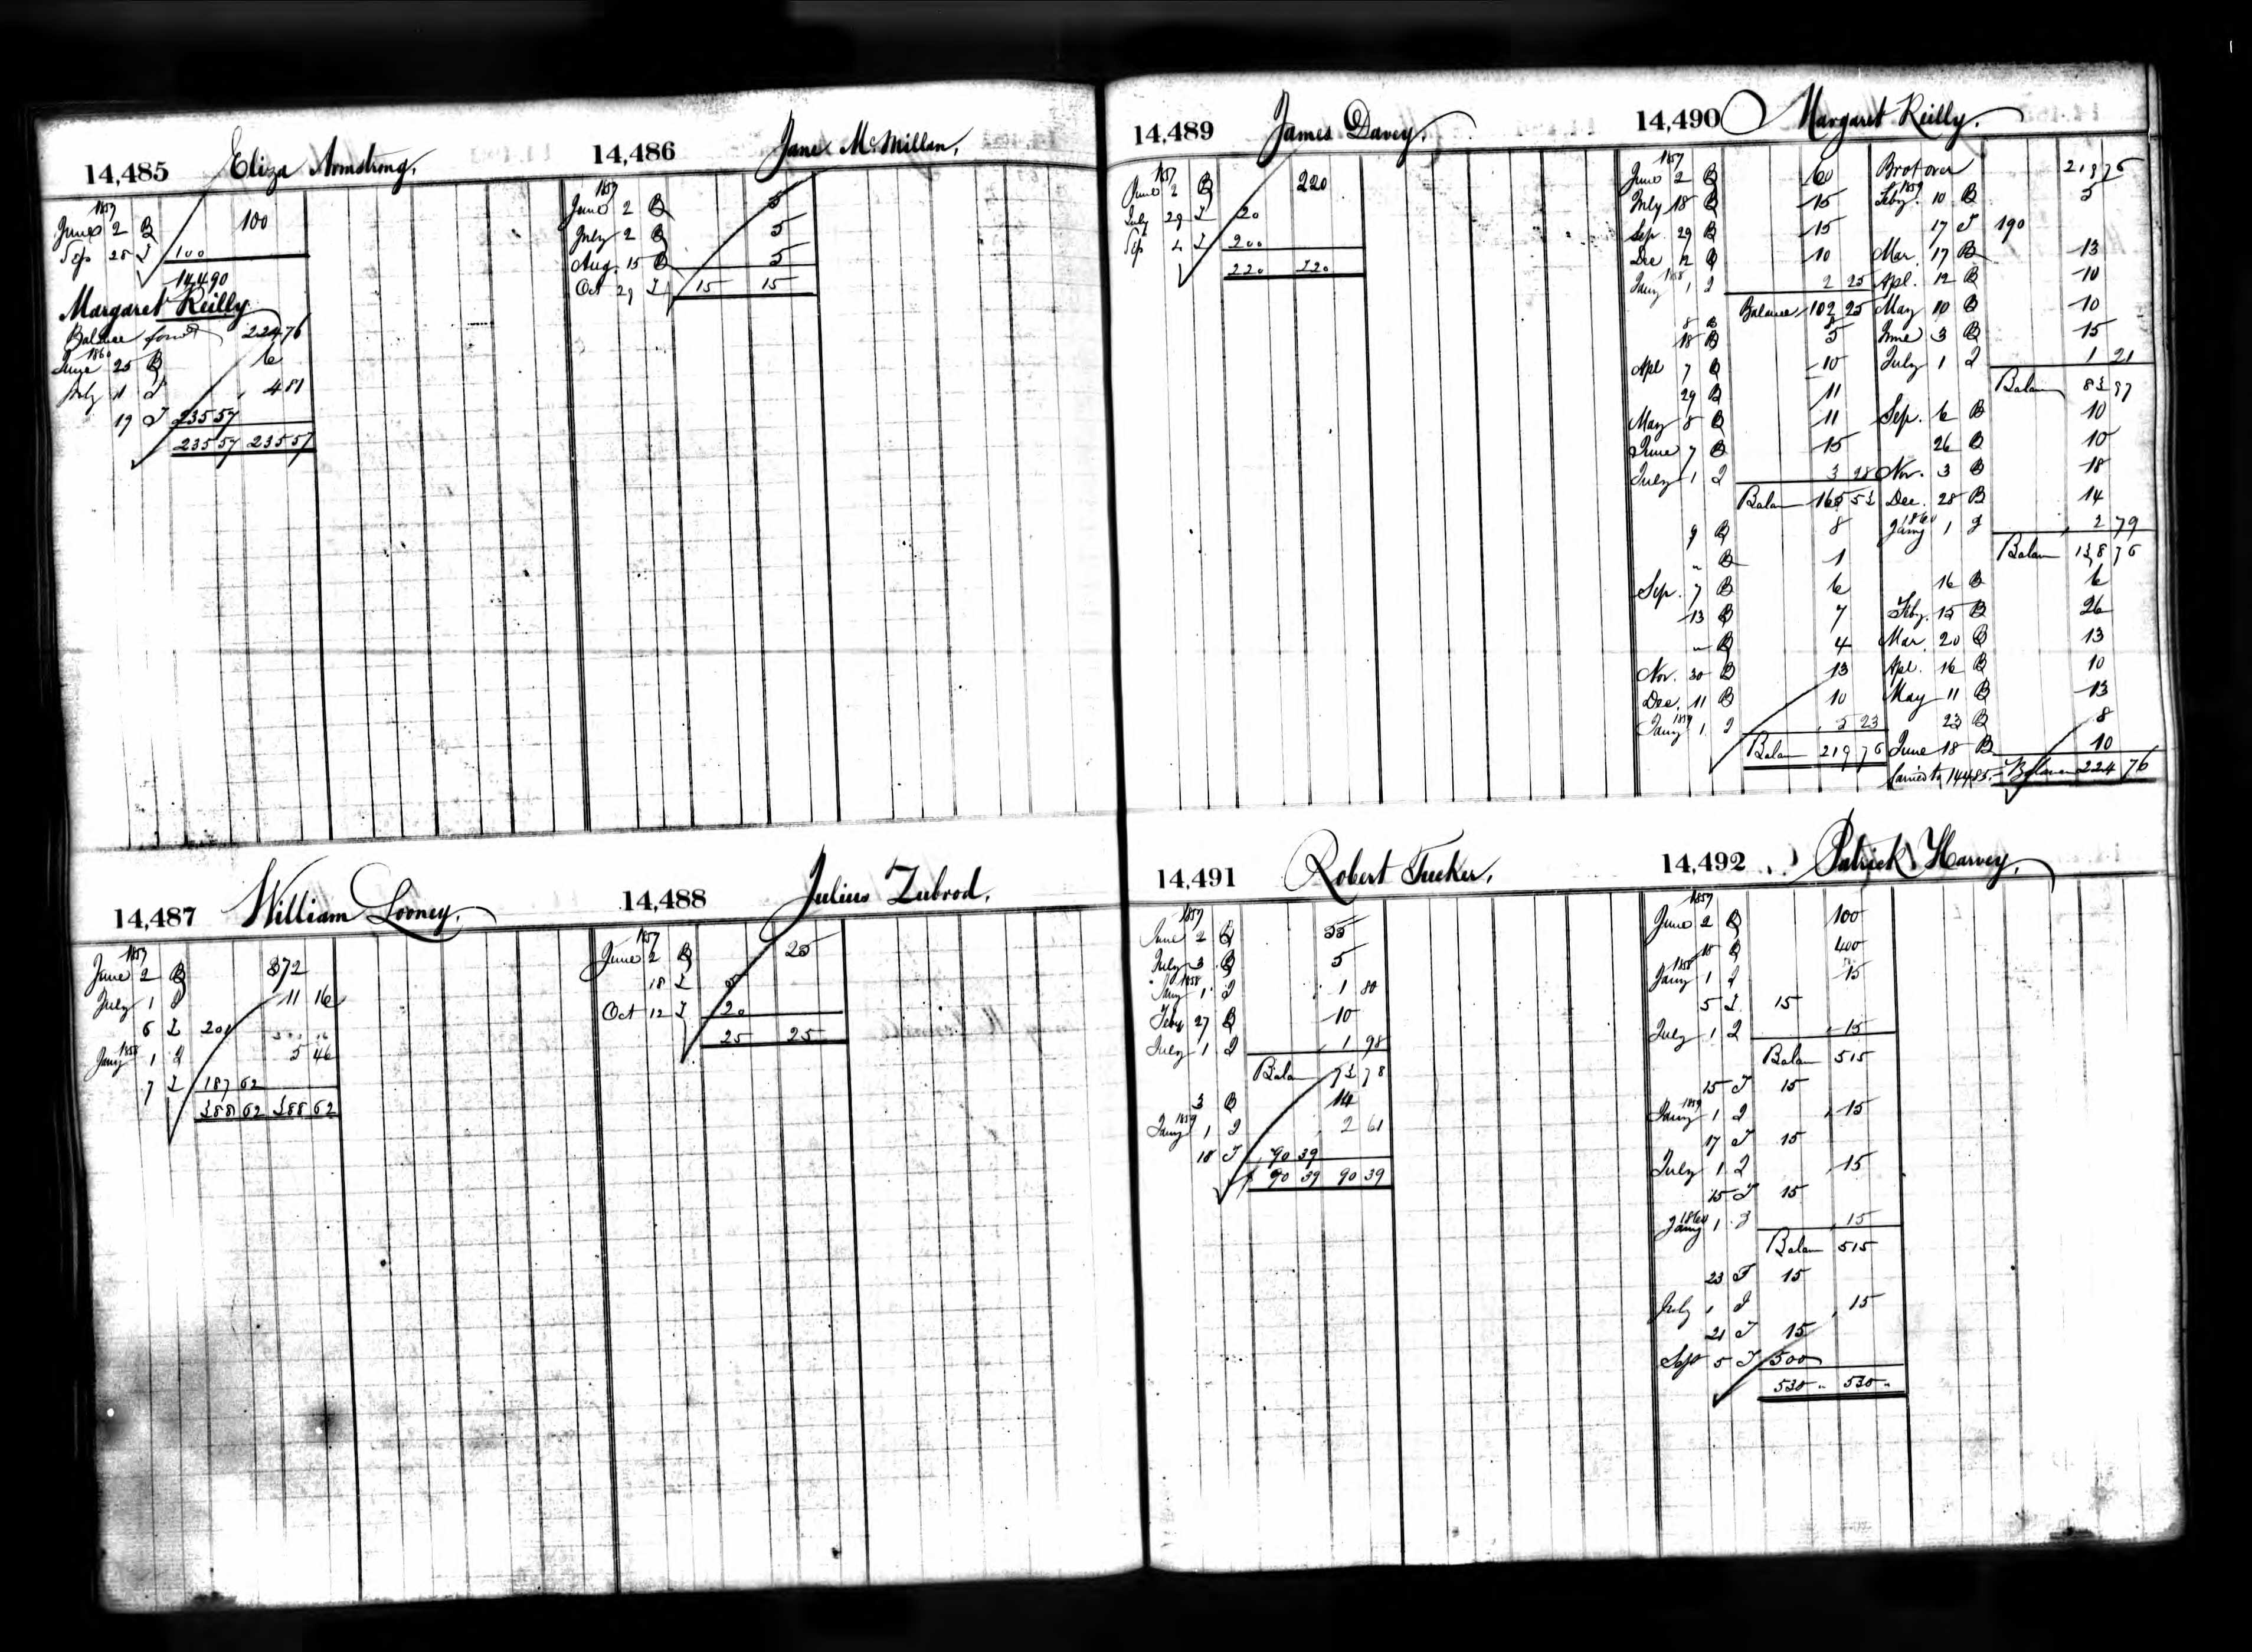 14,485 Eliza Armstrong.
1857
June 2 B 100
Sep 28 I 100
14,490
Margaret Reilly
Balance forwd 224 76
1860
June 25 B 6
July 1 I 4 81
19 I 235 57
235 57 235 57
14,486 Jane McMillan.
1857
June 2 B 5
July 2 B 5
Aug. 15 B 5
Oct 29 I 15 15
14,487 William Looney.
1857
June 2 B 372
July 1 I 11 16
6 I 201
1858
Jany 1 I 5 46
7 I 187 62
388 62 388 62
14,488 Julius Zubrod.
1857
June 2 B 25
18 I 5
Oct 12 I 20
25 25
14,489 James Davey.
1857
June 2 B 220
July 29 I 20
Sep 4 I 200
220 220
14,490 Margaret Reilly.
1857
June 2 B 60
July 18 B 15
Sep. 29 B 15
Dec 12 B 10
1858
Jany 1 I 2 25
Balance 102 25
8 B 8
18 B 5
Apl 7 B 10
29 B 11
May 8 B 11
June 7 B 15
July 1 I 3 28
Balan 165 53
9 B 8
" B 1
Sep. 7 B 6
13 B 7
" B 4
Nov. 30 B 13
Dec. 11 B 10
1859
Jany 1 I 5 23
Balan 219 76
Brot over 219 76
1859
Feby. 10 B 5
17 I 190
Mar. 17 B 13
Apl. 12 B 10
May 10 B 10
June 3 B 15
July 1 I 1 21
Balan 83 97
Sep. 6 B 10
26 B 10
Nov. 3 B 18
Dec. 28 B 14
1860
Jany 1 I 2 79
Balan 138 76
16 B 6
Feby. 15 B 26
Mar. 20 B 13
Apl. 16 B 10
May 11 B 13
23 B 8
June 18 B 10
Carried to 14485. Balance 224 76
14,491 Robert Tucker.
1857
June 2 B 55
July 3 B 5
1858
Jany 1 I 1 80
Feby 27 B 10
July 1 I 1 98
Balan 73 78
3 B 14
1859
Jany 1 I 2 61
18 I 90 39
90 39 90 39
14,492 Patrick Harvey.
1857
June 2 B 100
15 B 400
1858
Jany 1 I 15
5 I 15
July 1 I 15
Balan 515
15 I 15
1859
Jany 1 I 15
17 I 15
July 1 I 15
15 I 15
1860
Jany 1 I 15
Balan 515
23 I 15
July 1 I 15
21 I 15
Sept 5 I 500
530 " 530 "